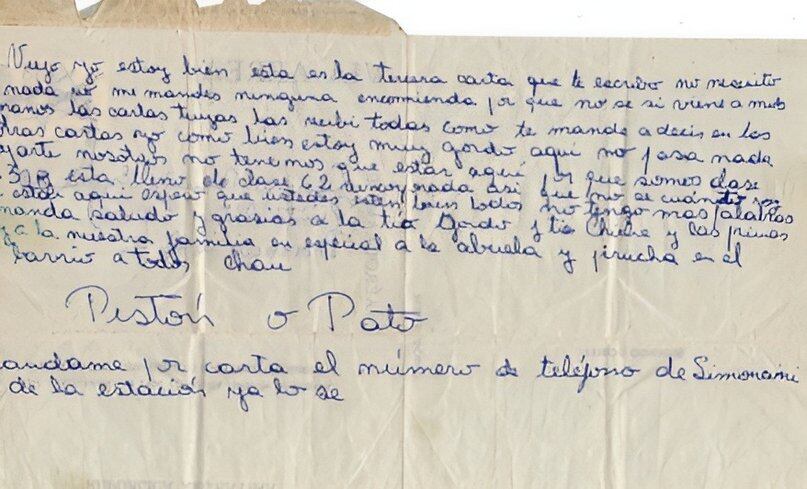 Vujo yo estoy bien esta es la tersera carta que te escribo no necesito
nada no me mandes ninguna encomienda por que no se si viene a mis
manos las cartas tuyas las recibi todas como te mande a decir en las
otras cartas yo como bien estoy muy gordo aqui no pasa nada
aparte nosotros no tenemos que estar aqui por que somos clase
esta lleno de clase 62 asi que no se cuánto
estar aqui espero que ustedes esten bien todos no tengo mas palabras
manda saludo y grasias a la tia Gordo y tia Chiche y las primas
y a la nuestra familia en especial a la abuela y pirucha en el
barrio a todos chau
Pistón o Pato
andame por carta el número de teléfono de Simonami
de la estación ya lo se